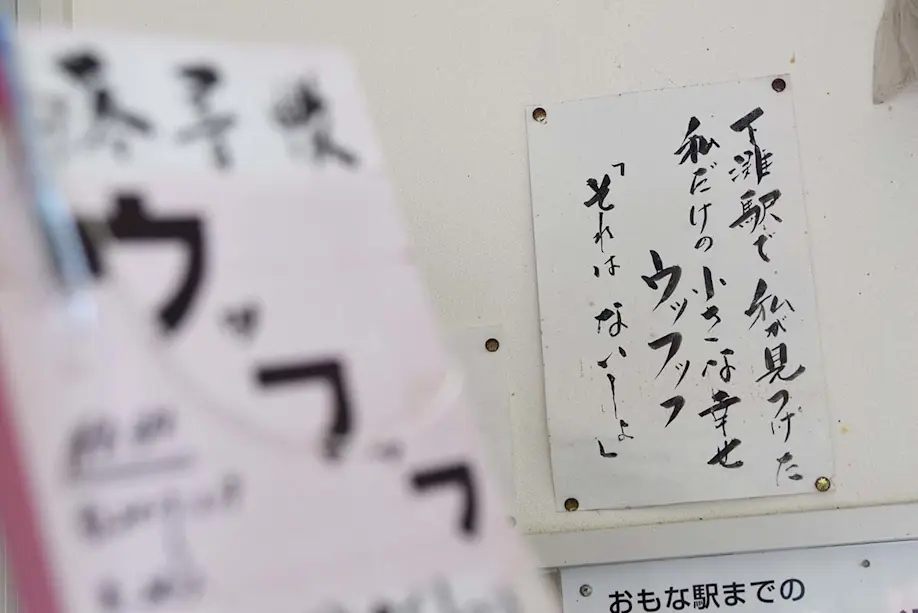 ウッフッフ
下灘駅で 私が見つけた
私だけの 小さな幸せ
ウッフッフ
「それは ないしょ」
おもな駅までの